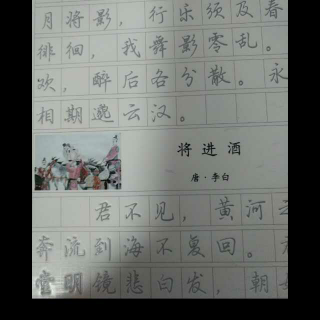 月将影，行乐须及春
徘徊，我舞影零乱。
欢，醉后各分散。永
相期邈云汉。
将进酒
唐·李白
君不见，黄河
奔流到海不复回。
堂明镜悲白发，朝